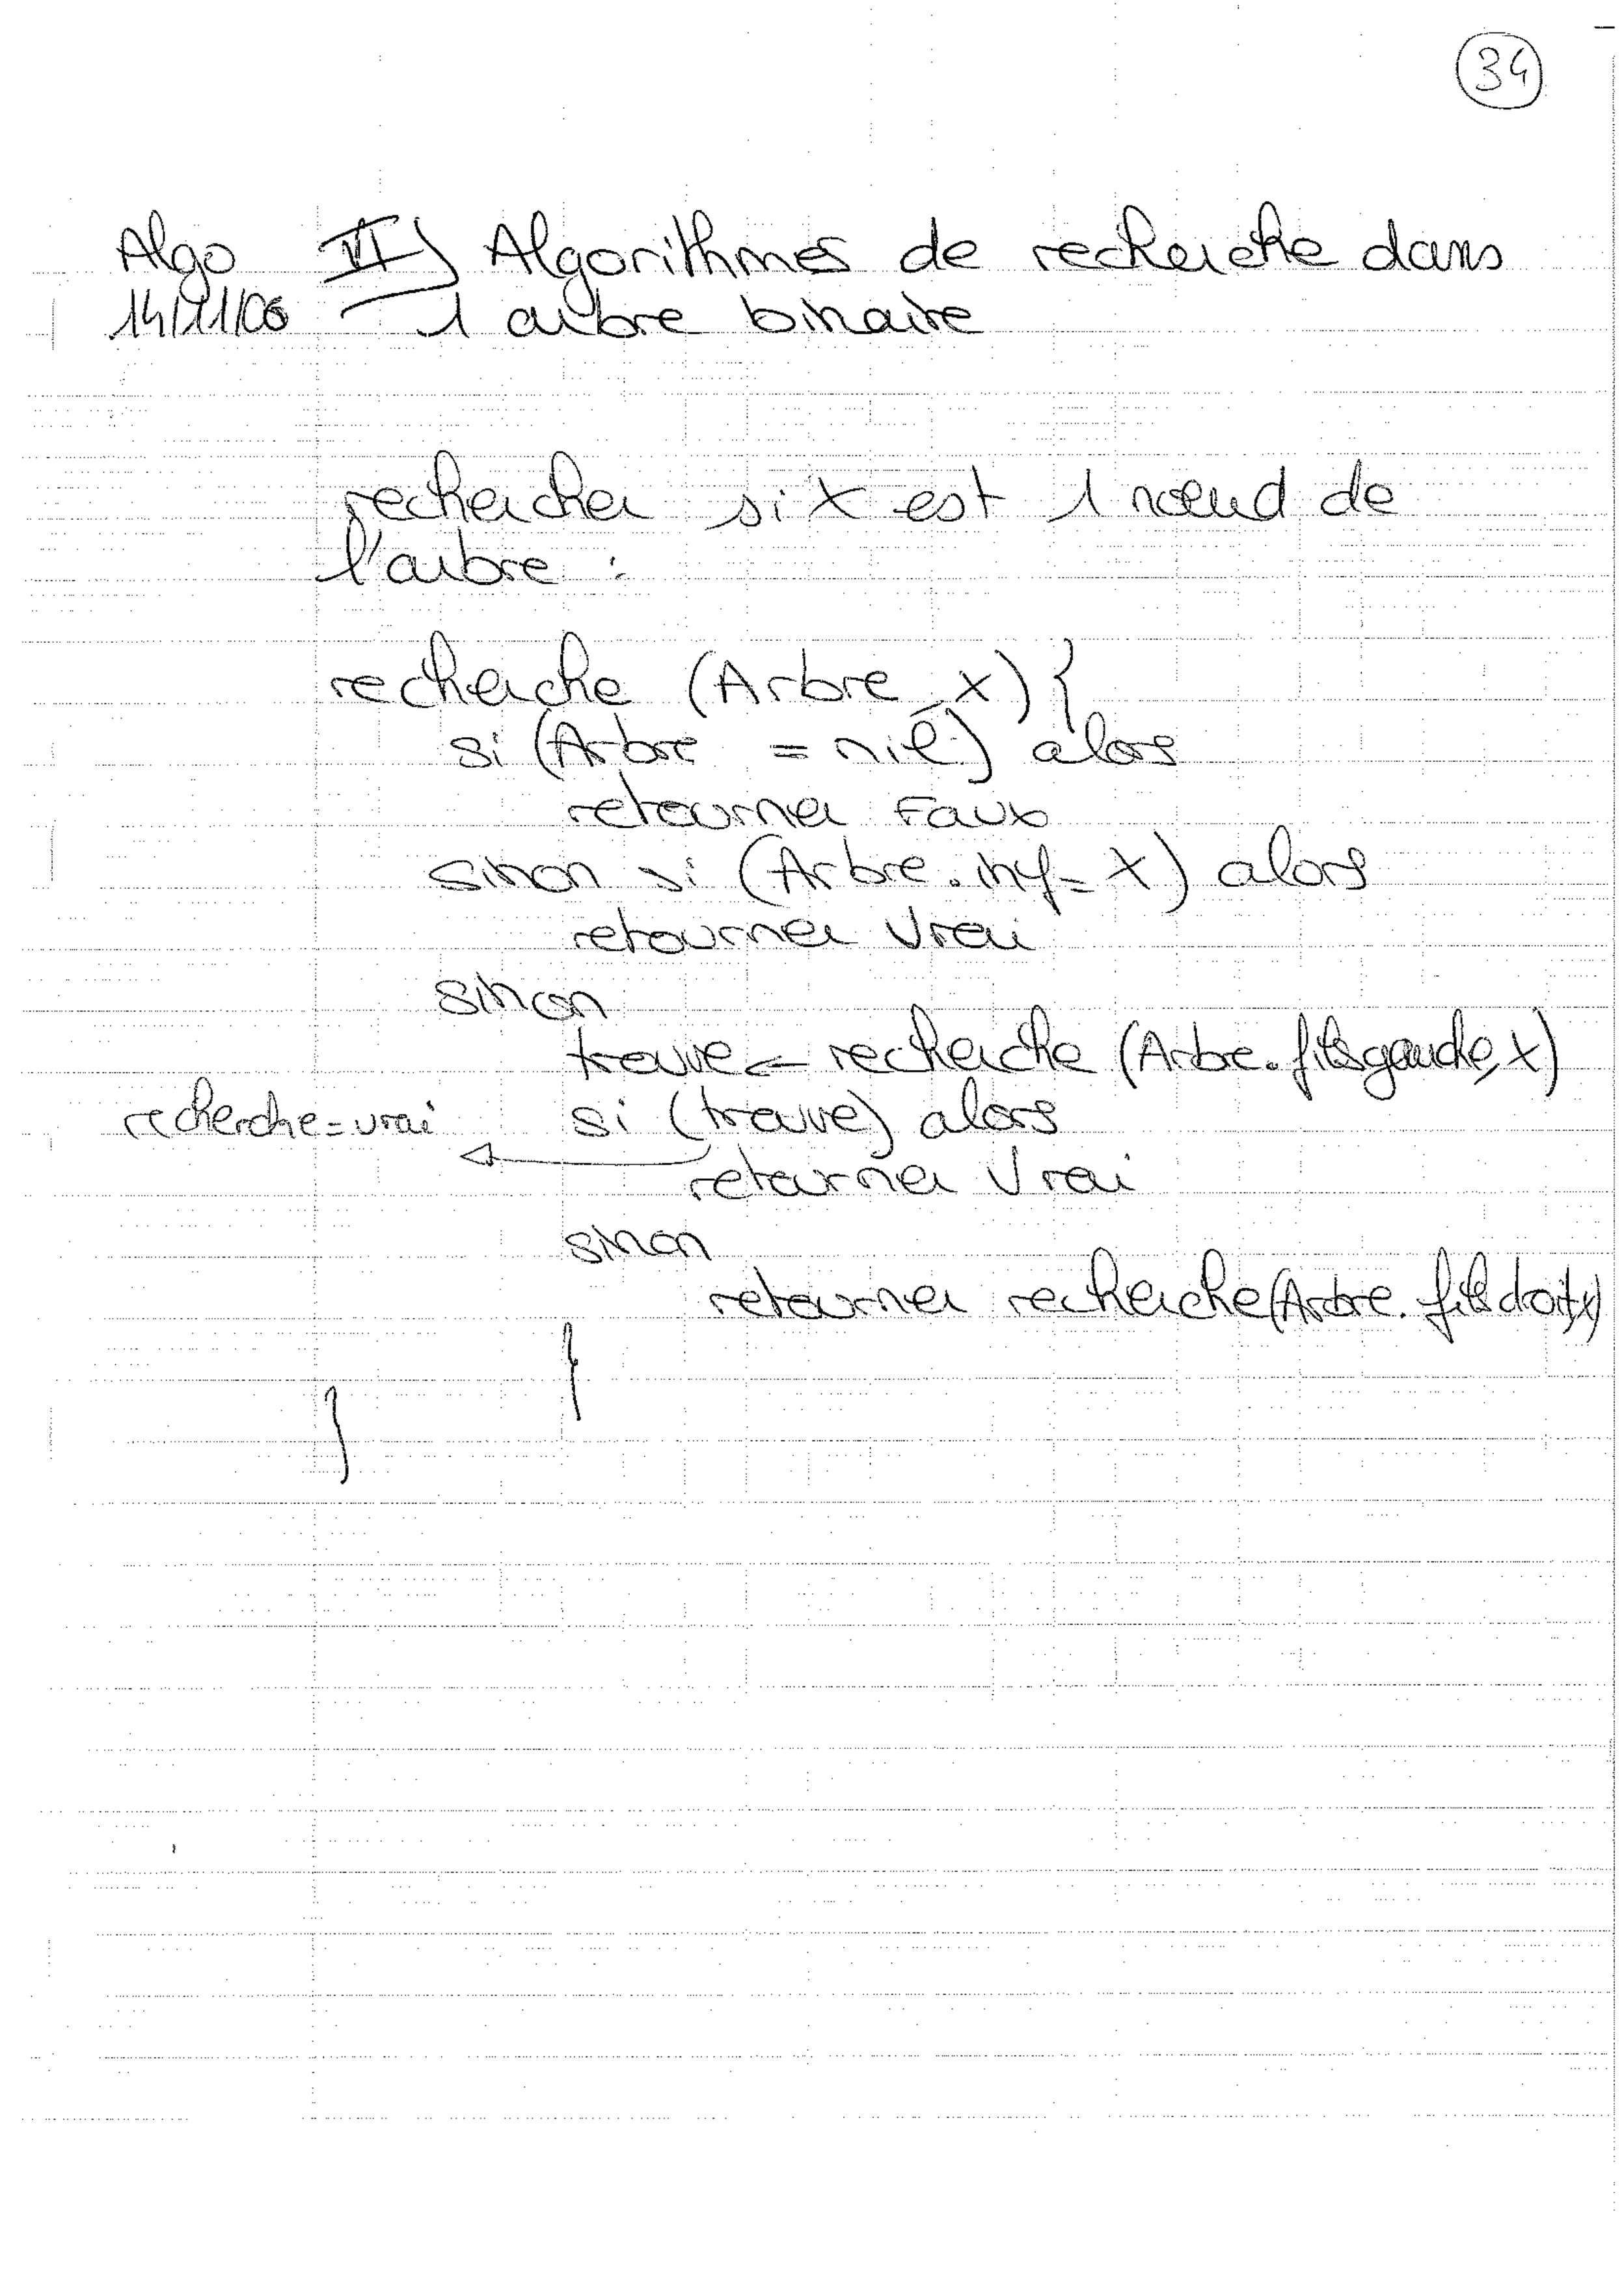 34
Algo VI) Algorithmes de recherche dans
14/11/06 1 arbre binaire
rechercher si x est 1 nœud de
l'arbre :
recherche (Arbre, x) {
si (Arbre = nil) alors
retourner Faux
sinon si (Arbre.inf = x) alors
retourner Vrai
sinon
trouve ← recherche (Arbre.filsgauche, x)
recherche = vrai si (trouve) alors
retourner Vrai
sinon
retourner recherche (Arbre.filsdroit, x)
}
}